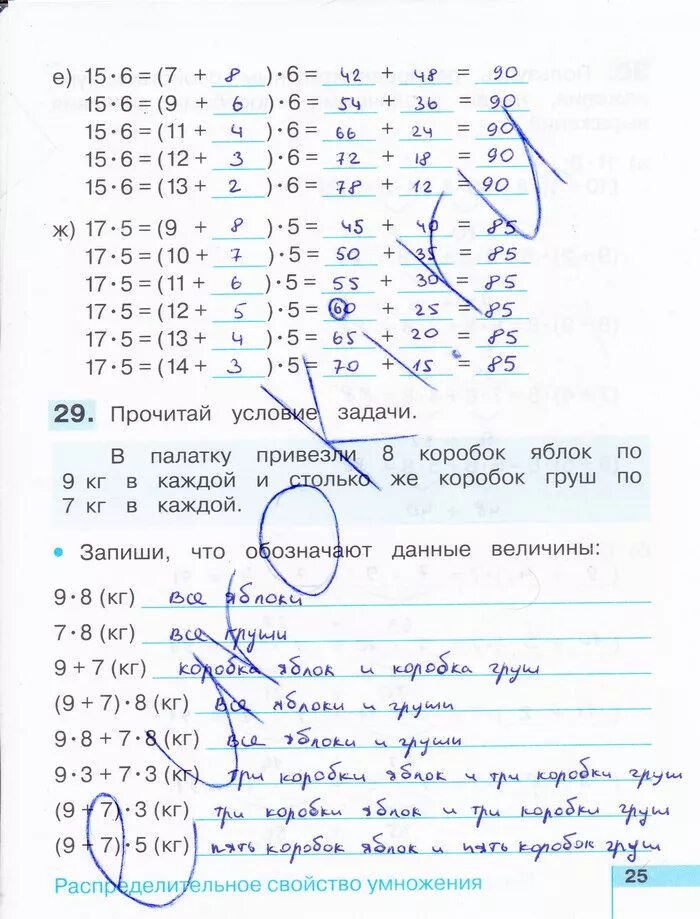 е) 15·6 = (7 + 8)·6 = 42 + 48 = 90
15·6 = (9 + 6)·6 = 54 + 36 = 90
15·6 = (11 + 4)·6 = 66 + 24 = 90
15·6 = (12 + 3)·6 = 72 + 18 = 90
15·6 = (13 + 2)·6 = 78 + 12 = 90
ж) 17·5 = (9 + 8)·5 = 45 + 40 = 85
17·5 = (10 + 7)·5 = 50 + 35 = 85
17·5 = (11 + 6)·5 = 55 + 30 = 85
17·5 = (12 + 5)·5 = 60 + 25 = 85
17·5 = (13 + 4)·5 = 65 + 20 = 85
17·5 = (14 + 3)·5 = 70 + 15 = 85
29. Прочитай условие задачи.
В палатку привезли 8 коробок яблок по
9 кг в каждой и столько же коробок груш по
7 кг в каждой.
• Запиши, что обозначают данные величины:
9·8 (кг) все яблоки
7·8 (кг) все груши
9 + 7 (кг) коробка яблок и коробка груш
(9 + 7)·8 (кг) все яблоки и груши
9·8 + 7·8 (кг) все яблоки и груши
9·3 + 7·3 (кг) три коробки яблок и три коробки груш
(9 + 7)·3 (кг) три коробки яблок и три коробки груш
(9 + 7)·5 (кг) пять коробок яблок и пять коробок груш
Распределительное свойство умножения 25